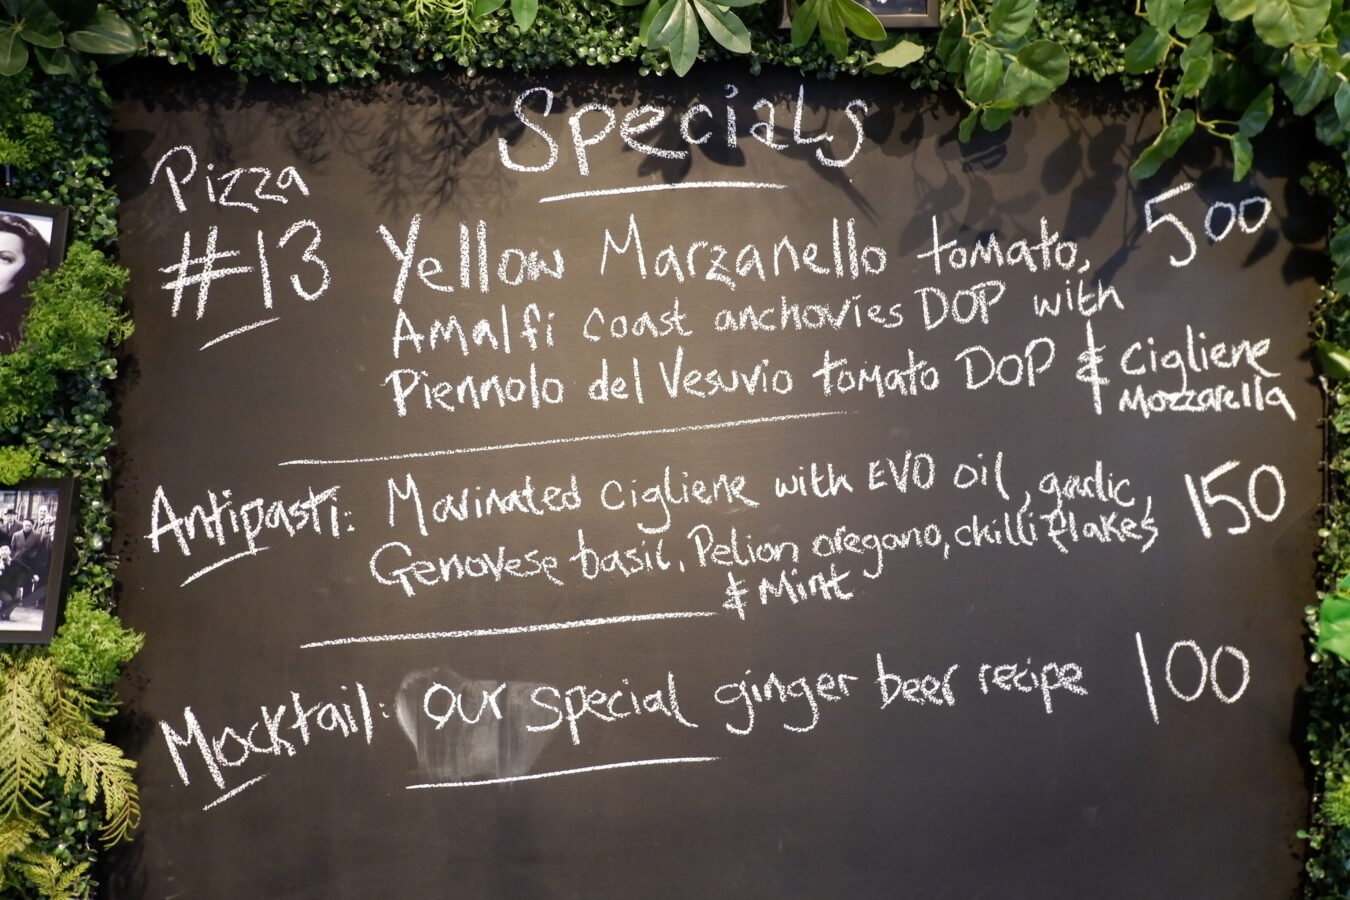 Specials
Pizza
#13
Yellow Marzanello tomato, 500
Amalfi coast anchovies DOP with
Piennolo del Vesuvio tomato DOP & Cigliene
Mozzarella
Antipasti: Marinated cigliene with EVO oil, garlic, 150
Genovese basil, Pelion oregano, chilli flakes
& Mint
Mocktail: Our special ginger beer recipe 100